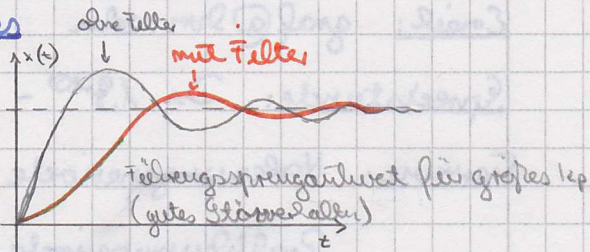 es
ohne Filter
x(t)
mit Filter
Führungssprungantwort für großes kp
(gutes Störverhalten)
t